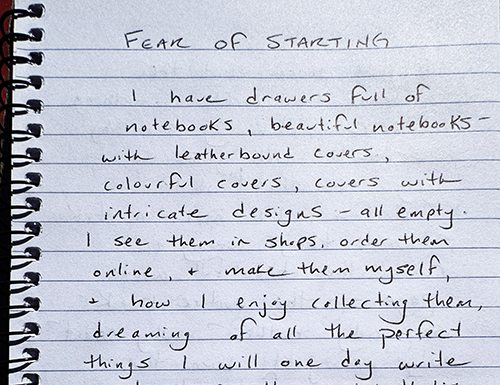 FEAR OF STARTING
I have drawers full of
notebooks, beautiful notebooks -
with leatherbound covers,
colourful covers, covers with
intricate designs - all empty.
I see them in shops, order them
online, + make them myself,
+ how I enjoy collecting them,
dreaming of all the perfect
things I will one day write